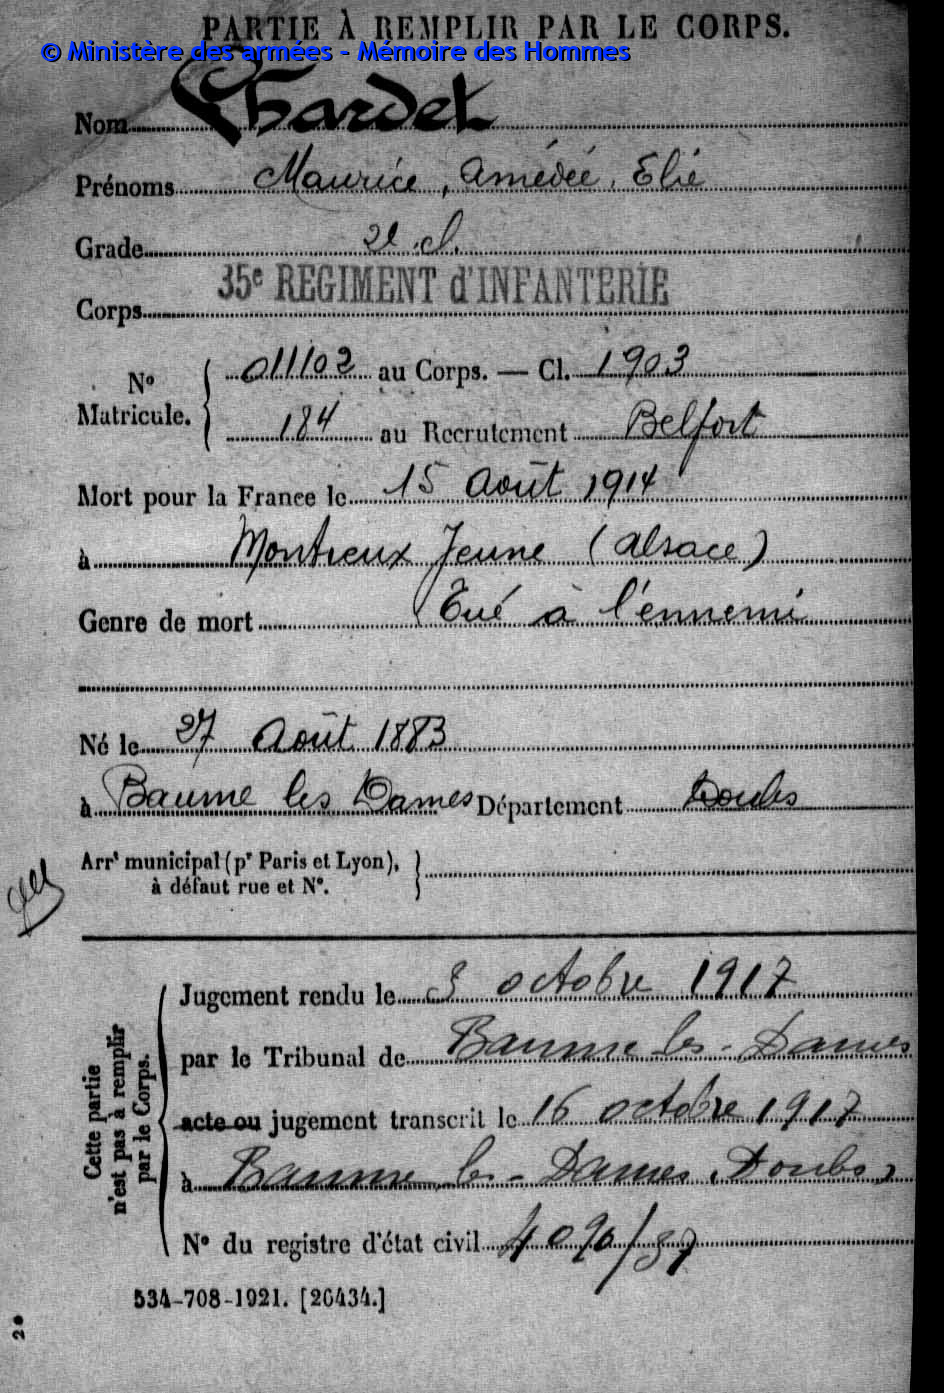 PARTIE À REMPLIR PAR LE CORPS.
© Ministère des armées - Mémoire des Hommes
Nom Chardet
Prénoms Maurice, Amédée, Elie
Grade 2e cl.
35e REGIMENT d'INFANTERIE
Corps
No Matricule. { 011102 au Corps. — Cl. 1903
184 au Recrutement Belfort
Mort pour la France le 15 Août 1914
à Montreux Jeune (Alsace)
Genre de mort Tué à l'ennemi
Né le 27 Août 1883
à Baume les Dames Département Doubs
Arrt municipal (pr Paris et Lyon),
à défaut rue et No.
Cette partie
n'est pas à remplir
par le Corps.
Jugement rendu le 3 octobre 1917
par le Tribunal de Baume-les-Dames
acte ou jugement transcrit le 16 octobre 1917
à Baume-les-Dames (Doubs)
No du registre d'état civil
534-708-1921. [26434.]